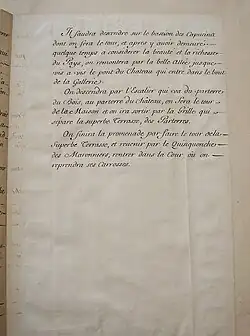 Il faudra descendre sur le bastion des Capucins
dont on fera le tour, et apres y avoir demeuré
quelque temps a considerer la beauté et la richesse
du Pays, on remontera par la belle Allée jusque
vis a vis le pont du Chateau qui entre dans le bout
de la Gallerie;
On descendra par l'Escalier qui va du parterre
du Bois, au parterre du Chateau, on fera le tour
de la Maison et on ira sortir par la Grille qui
separe la superbe Terrasse, des Parterres.
On finira la promenade par faire le tour de la
Superbe Terrasse, et revenir par le Quinquonche
des Maronniers, rentrer dans la Cour ou on
reprendra ses Carrosses.